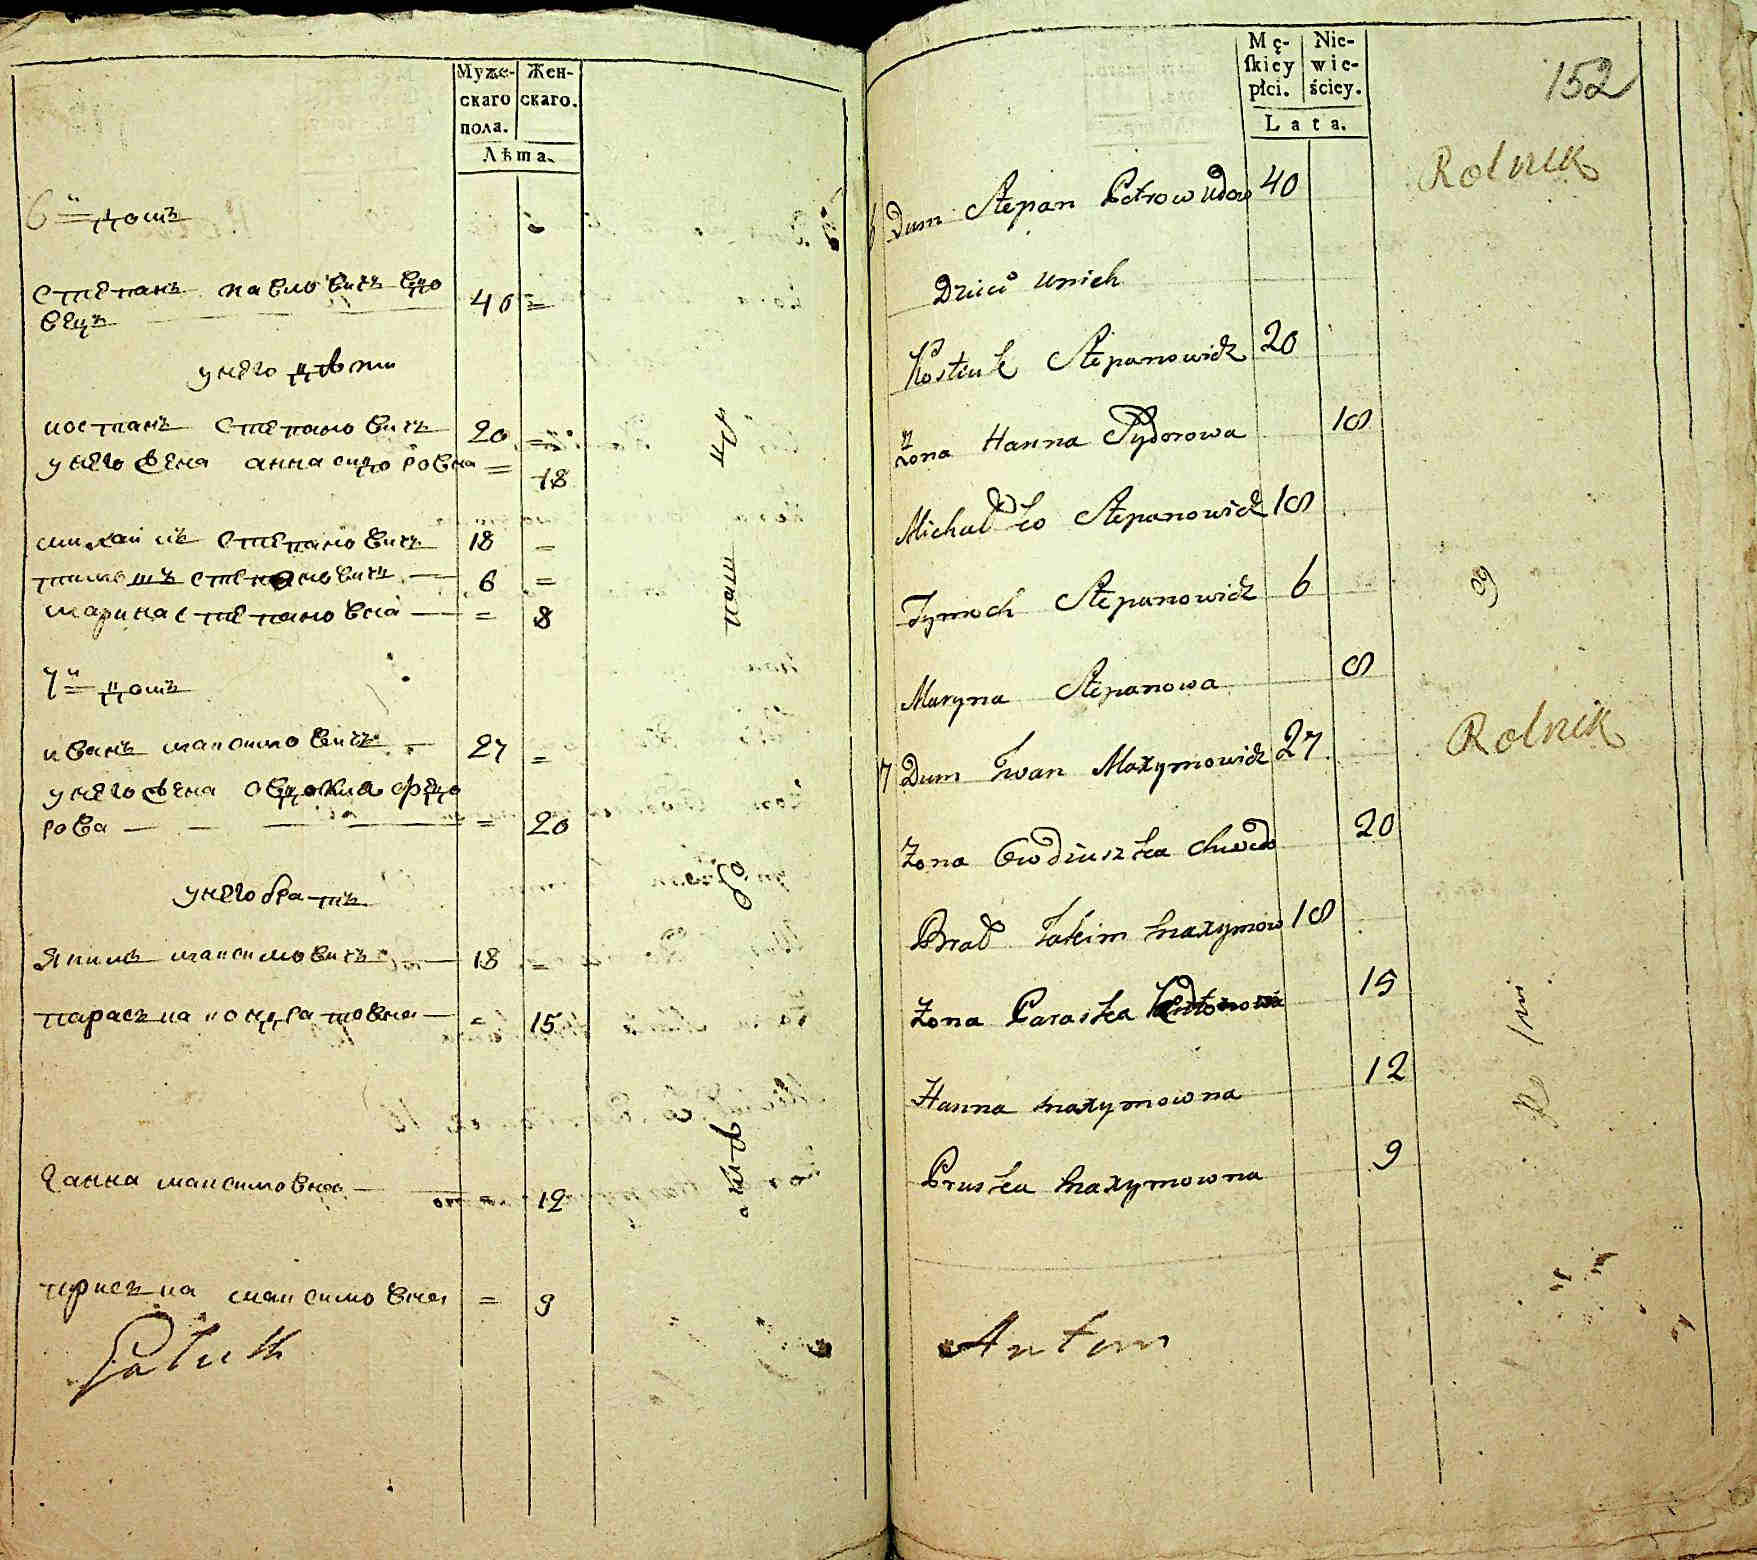 Муже-
скаго
пола.
Жен-
скаго.
Лѣта.
6й домъ
степанъ павловичъ вдо
вецъ 40 =
у него дѣти
костюкъ степановичъ 20 =
у него жена анна сидоровна = 18
михайла степановичъ 18 =
тимошъ степановичъ 6 =
марина степановна = 8
7й домъ
иванъ максимовичъ 27 =
у него жена овдокиа федо
рова = 20
у него братъ
якимъ максимовичъ 18 =
параска кондратовна = 15
ганна максимовна = 12
приска максимовна = 9
Mę-
ſkiey
płci.
Nie-
wie-
ściey.
Lata.
152
6 Dum Stepan Petrow udow 40
Rolnik
Dzieci unich
Kostiuk Stepanowicz 20
żona Hanna Sydorowa 18
Michałko Stepanowicz 18
Tymoch Stepanowicz 6
Maryna Stepanowa 8
7 Dum Iwan Maxymowicz 27
Rolnik
Żona Ewdiuszka Chwedo 20
Brat Jakim Maxymow 18
Żona Paraska 15
Hanna Maxymowna 12
Pruska Maxymowna 9
Anton